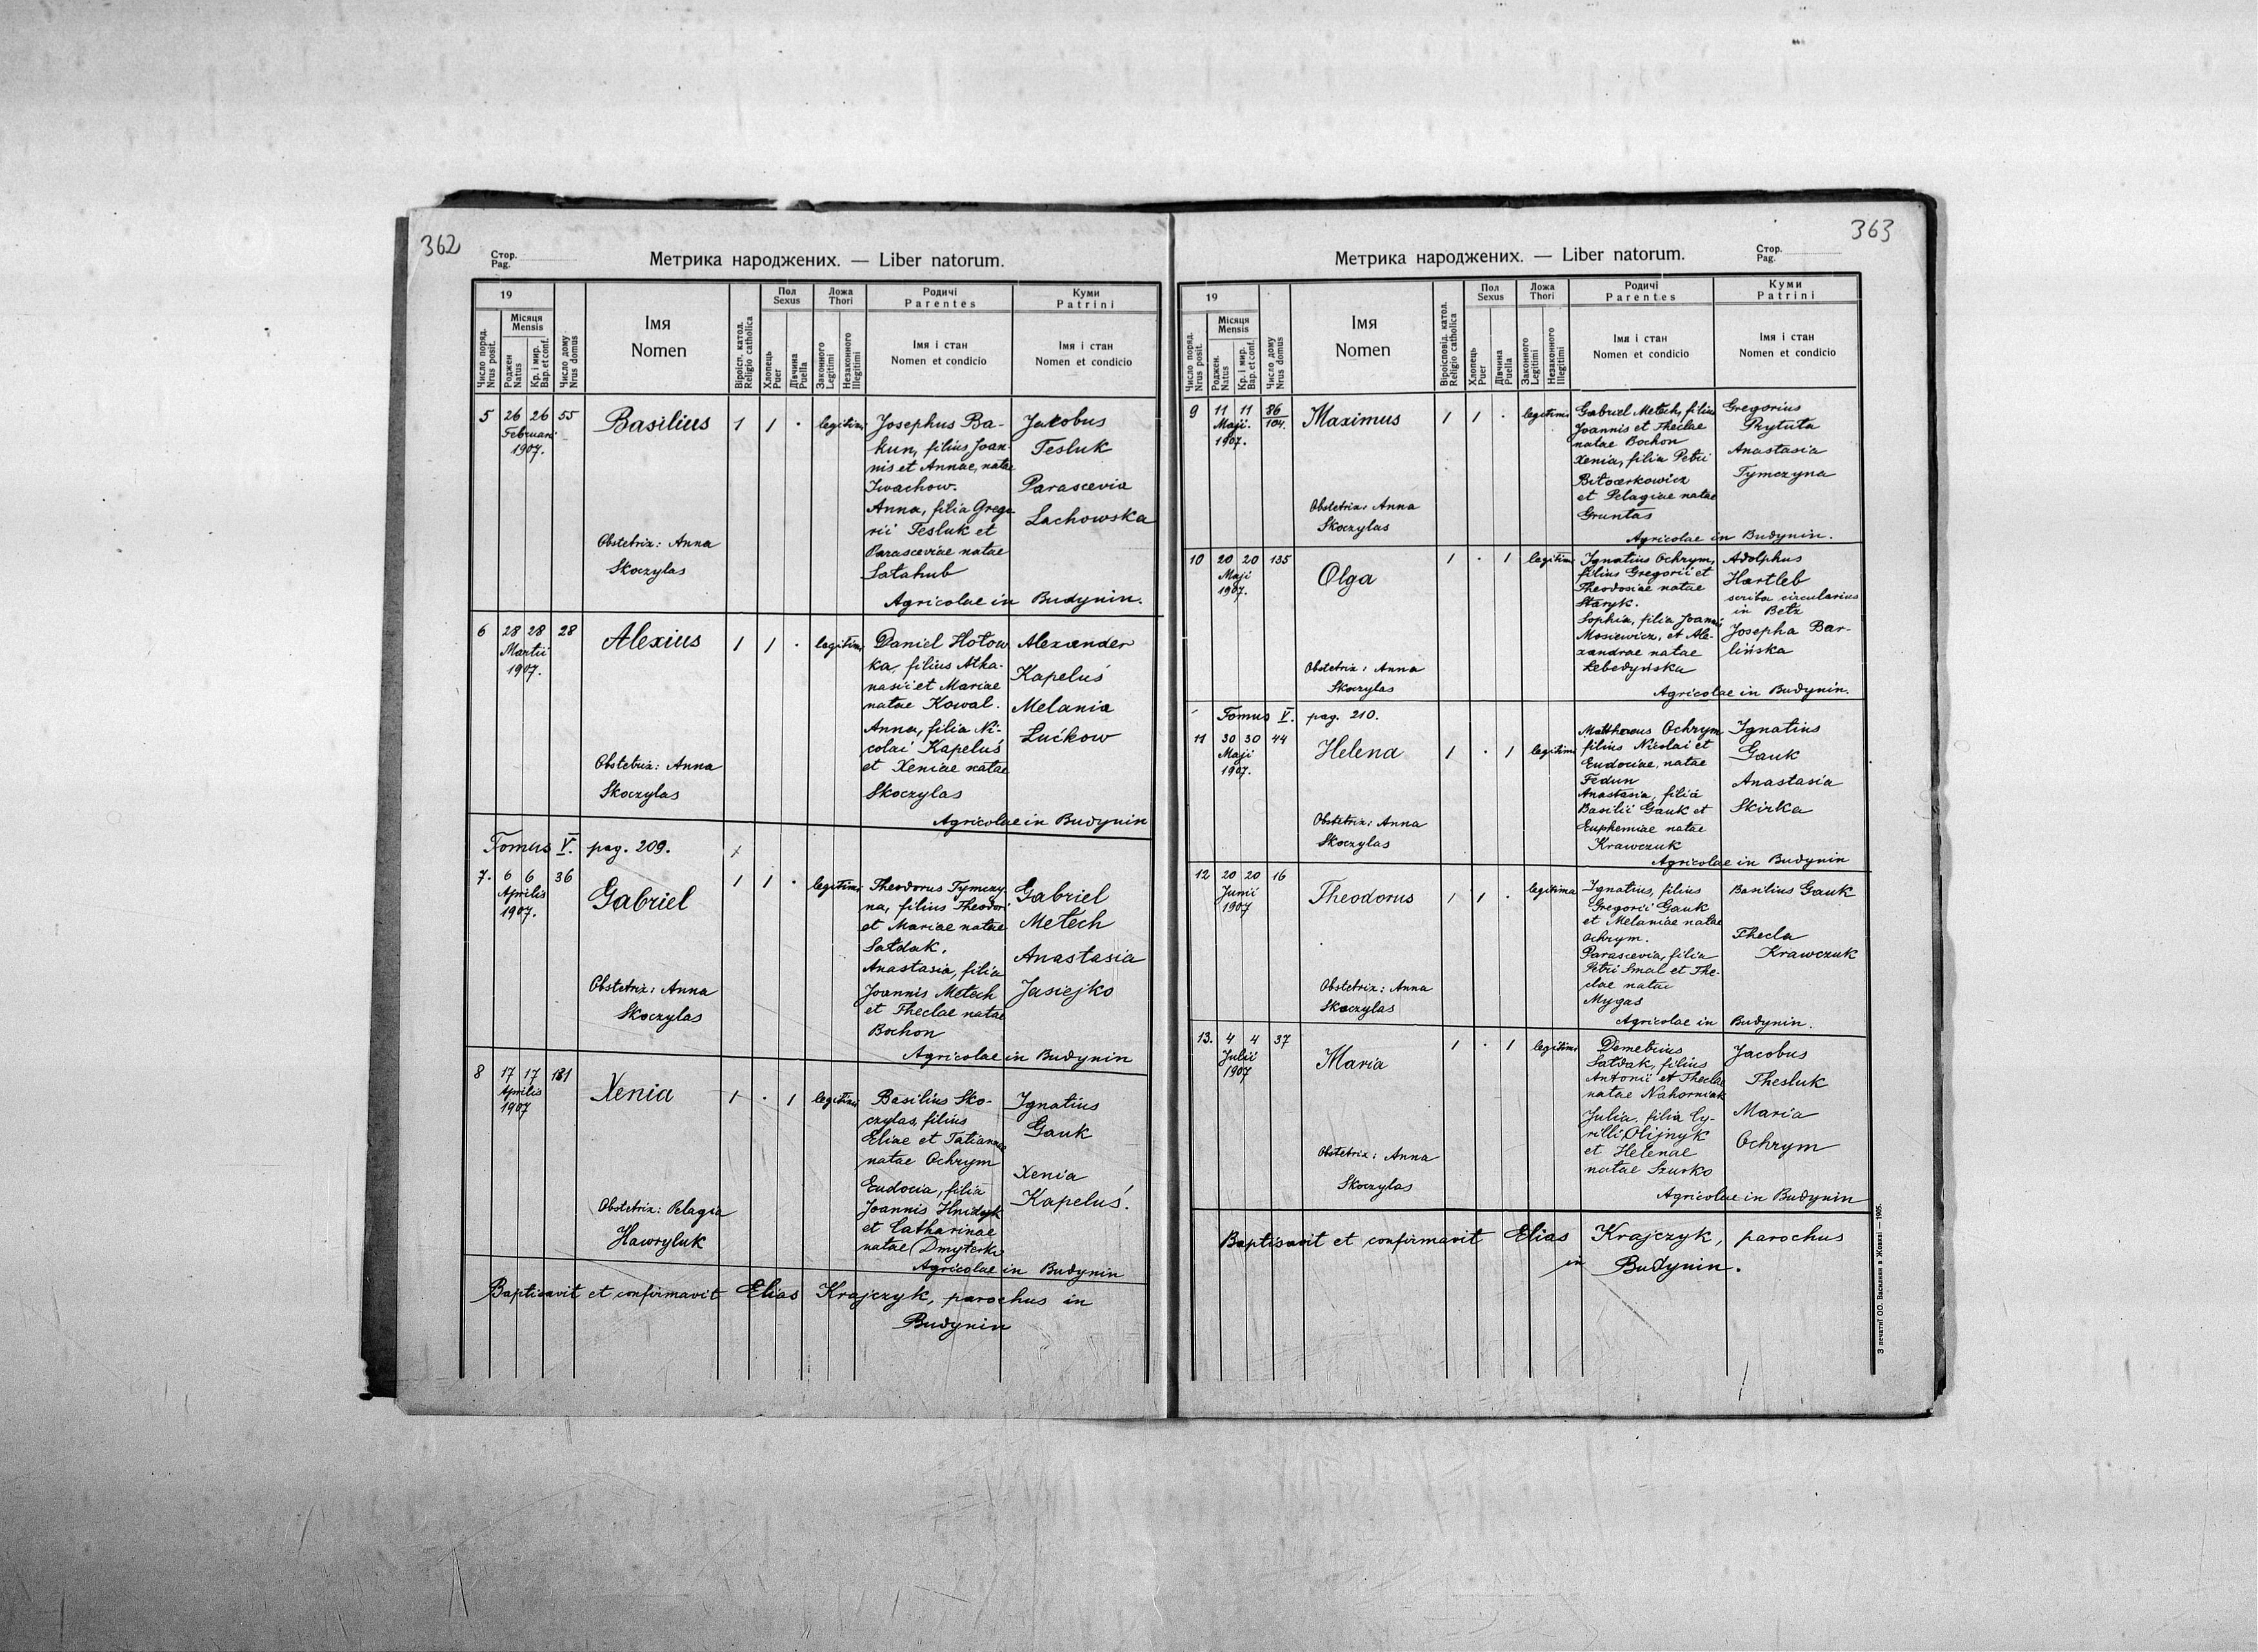 362
Стор.
Pag.
Метрика народжених. — Liber natorum.
19
Число поряд.
Nrus posit.
Місяця
Mensis
Роджен
Natus
Кр. і мир.
Bap. et conf.
Число дому
Nrus domus
Імя
Nomen
Віроісп. катол.
Religio catholica
Пол
Sexus
Хлопець
Puer
Дівчина
Puella
Ложа
Thori
Законного
Legitimi
Незаконного
Illegitimi
Родичі
Parentes
Імя і стан
Nomen et condicio
Куми
Patrini
Імя і стан
Nomen et condicio
5 26 26 55
Februarii
1907.
Basilius
1 1 · legitimi
Obstetrix: Anna
Skoczylas
Josephus Ba-
kun, filius Joan-
nis et Annae, natae
Iwachow.
Anna, filia Grego-
rii Tesluk et
Parasceviae natae
Satahub
Jakobus
Tesluk
Parascevia
Lachowska
Agricolae in Budynin.
6 28 28 28
Martii
1907.
Alexius
1 1 · legitimi
Obstetrix: Anna
Skoczylas
Daniel Hotow
ka, filius Atha-
nasii et Mariae
natae Kowal.
Anna, filia Ni-
colai Kapeluś
et Xeniae natae
Skoczylas
Alexander
Kapeluś
Melania
Łućkow
Agricolae in Budynin
Tomus V. pag. 209.
7. 6 6 36
Aprilis
1907.
Gabriel
1 1 · legitimi
Obstetrix: Anna
Skoczylas
Theodorus Tymczy-
na, filius Theodori
et Mariae natae
Sałdak.
Anastasia, filia
Joannis Metech
et Theclae natae
Bochon
Gabriel
Metech
Anastasia
Jasiejko
Agricolae in Budynin
8 17 17 131
Aprilis
1907
Xenia
1 · 1 legitimi
Obstetrix: Pelagia
Hawryluk
Basilius Sko-
czylas, filius
Eliae et Tatianae
natae Ochrym
Eudocia, filia
Joannis Hnidyk
et Catharinae
natae Dmyterko
Ignatius
Gauk
Xenia
Kapeluś.
Agricolae in Budynin
Baptisavit et confirmavit Elias Krajczyk, parochus in
Budynin
363
Стор.
Pag.
Метрика народжених. — Liber natorum.
19
Число поряд.
Nrus posit.
Місяця
Mensis
Роджен.
Natus
Кр. і мир.
Bap. et conf.
Число дому
Nrus domus
Імя
Nomen
Віроісповід. катол.
Religio catholica
Пол
Sexus
Хлопець
Puer
Дівчина
Puella
Ложа
Thori
Законного
Legitimi
Незаконного
Illegitimi
Родичі
Parentes
Імя і стан
Nomen et condicio
Куми
Patrini
Імя і стан
Nomen et condicio
9 11 11 86/104.
Maji.
1907.
Maximus
1 1 · legitimi
Obstetrix: Anna
Skoczylas
Gabriel Metech, filius
Joannis et Theclae
natae Bochon
Xenia, filia Petri
Bitocerkowicz
et Pelagiae natae
Gruntas
Gregorius
Prytuta
Anastasia
Tymczyna
Agricolae in Budynin.
10 20 20 135
Maji
1907.
Olga
1 · 1 legitimi
Obstetrix: Anna
Skoczylas
Ignatius Ochrym,
filius Gregorii et
Theodosiae natae
Staryk.
Sophia, filia Joannis
Mosiewicz, et Ale-
xandrae natae
Łebedyńska
Adolphus
Hartleb
scriba circularius
in Betz
Josepha Bar-
lińska
Agricolae in Budynin.
Tomus V. pag. 210.
11 30 30 44
Maji
1907.
Helena
1 · 1 legitimi
Obstetrix: Anna
Skoczylas
Matthaeus Ochrym
filius Nicolai et
Eudociae, natae
Fedun
Anastasia, filia
Basilii Gauk et
Euphemiae natae
Krawczuk
Ignatius
Gauk
Anastasia
Skirka
Agricolae in Budynin
12 20 20 16
Junii
1907
Theodorus
1 1 · legitima
Obstetrix: Anna
Skoczylas
Ignatius, filius
Gregorii Gauk
et Melaniae natae
Ochrym.
Parascevia, filia
Petri Smal et The-
clae natae
Mygas
Basilius Gauk
Thecla
Krawczuk
Agricolae in Budynin.
13. 4 4 37
Julii
1907
Maria
1 · 1 legitimi
Obstetrix: Anna
Skoczylas
Demetrius
Sałdak, filius
Antonii et Theclae
natae Nahorniak
Julia, filia Cy-
rilli Olijnyk
et Helenae
natae Szurko
Jacobus
Thesluk
Maria
Ochrym
Agricolae in Budynin
Baptisavit et confirmavit Elias Krajczyk, parochus
in Budynin.
З печатнї ОО. Василиян в Жовкві — 1905.